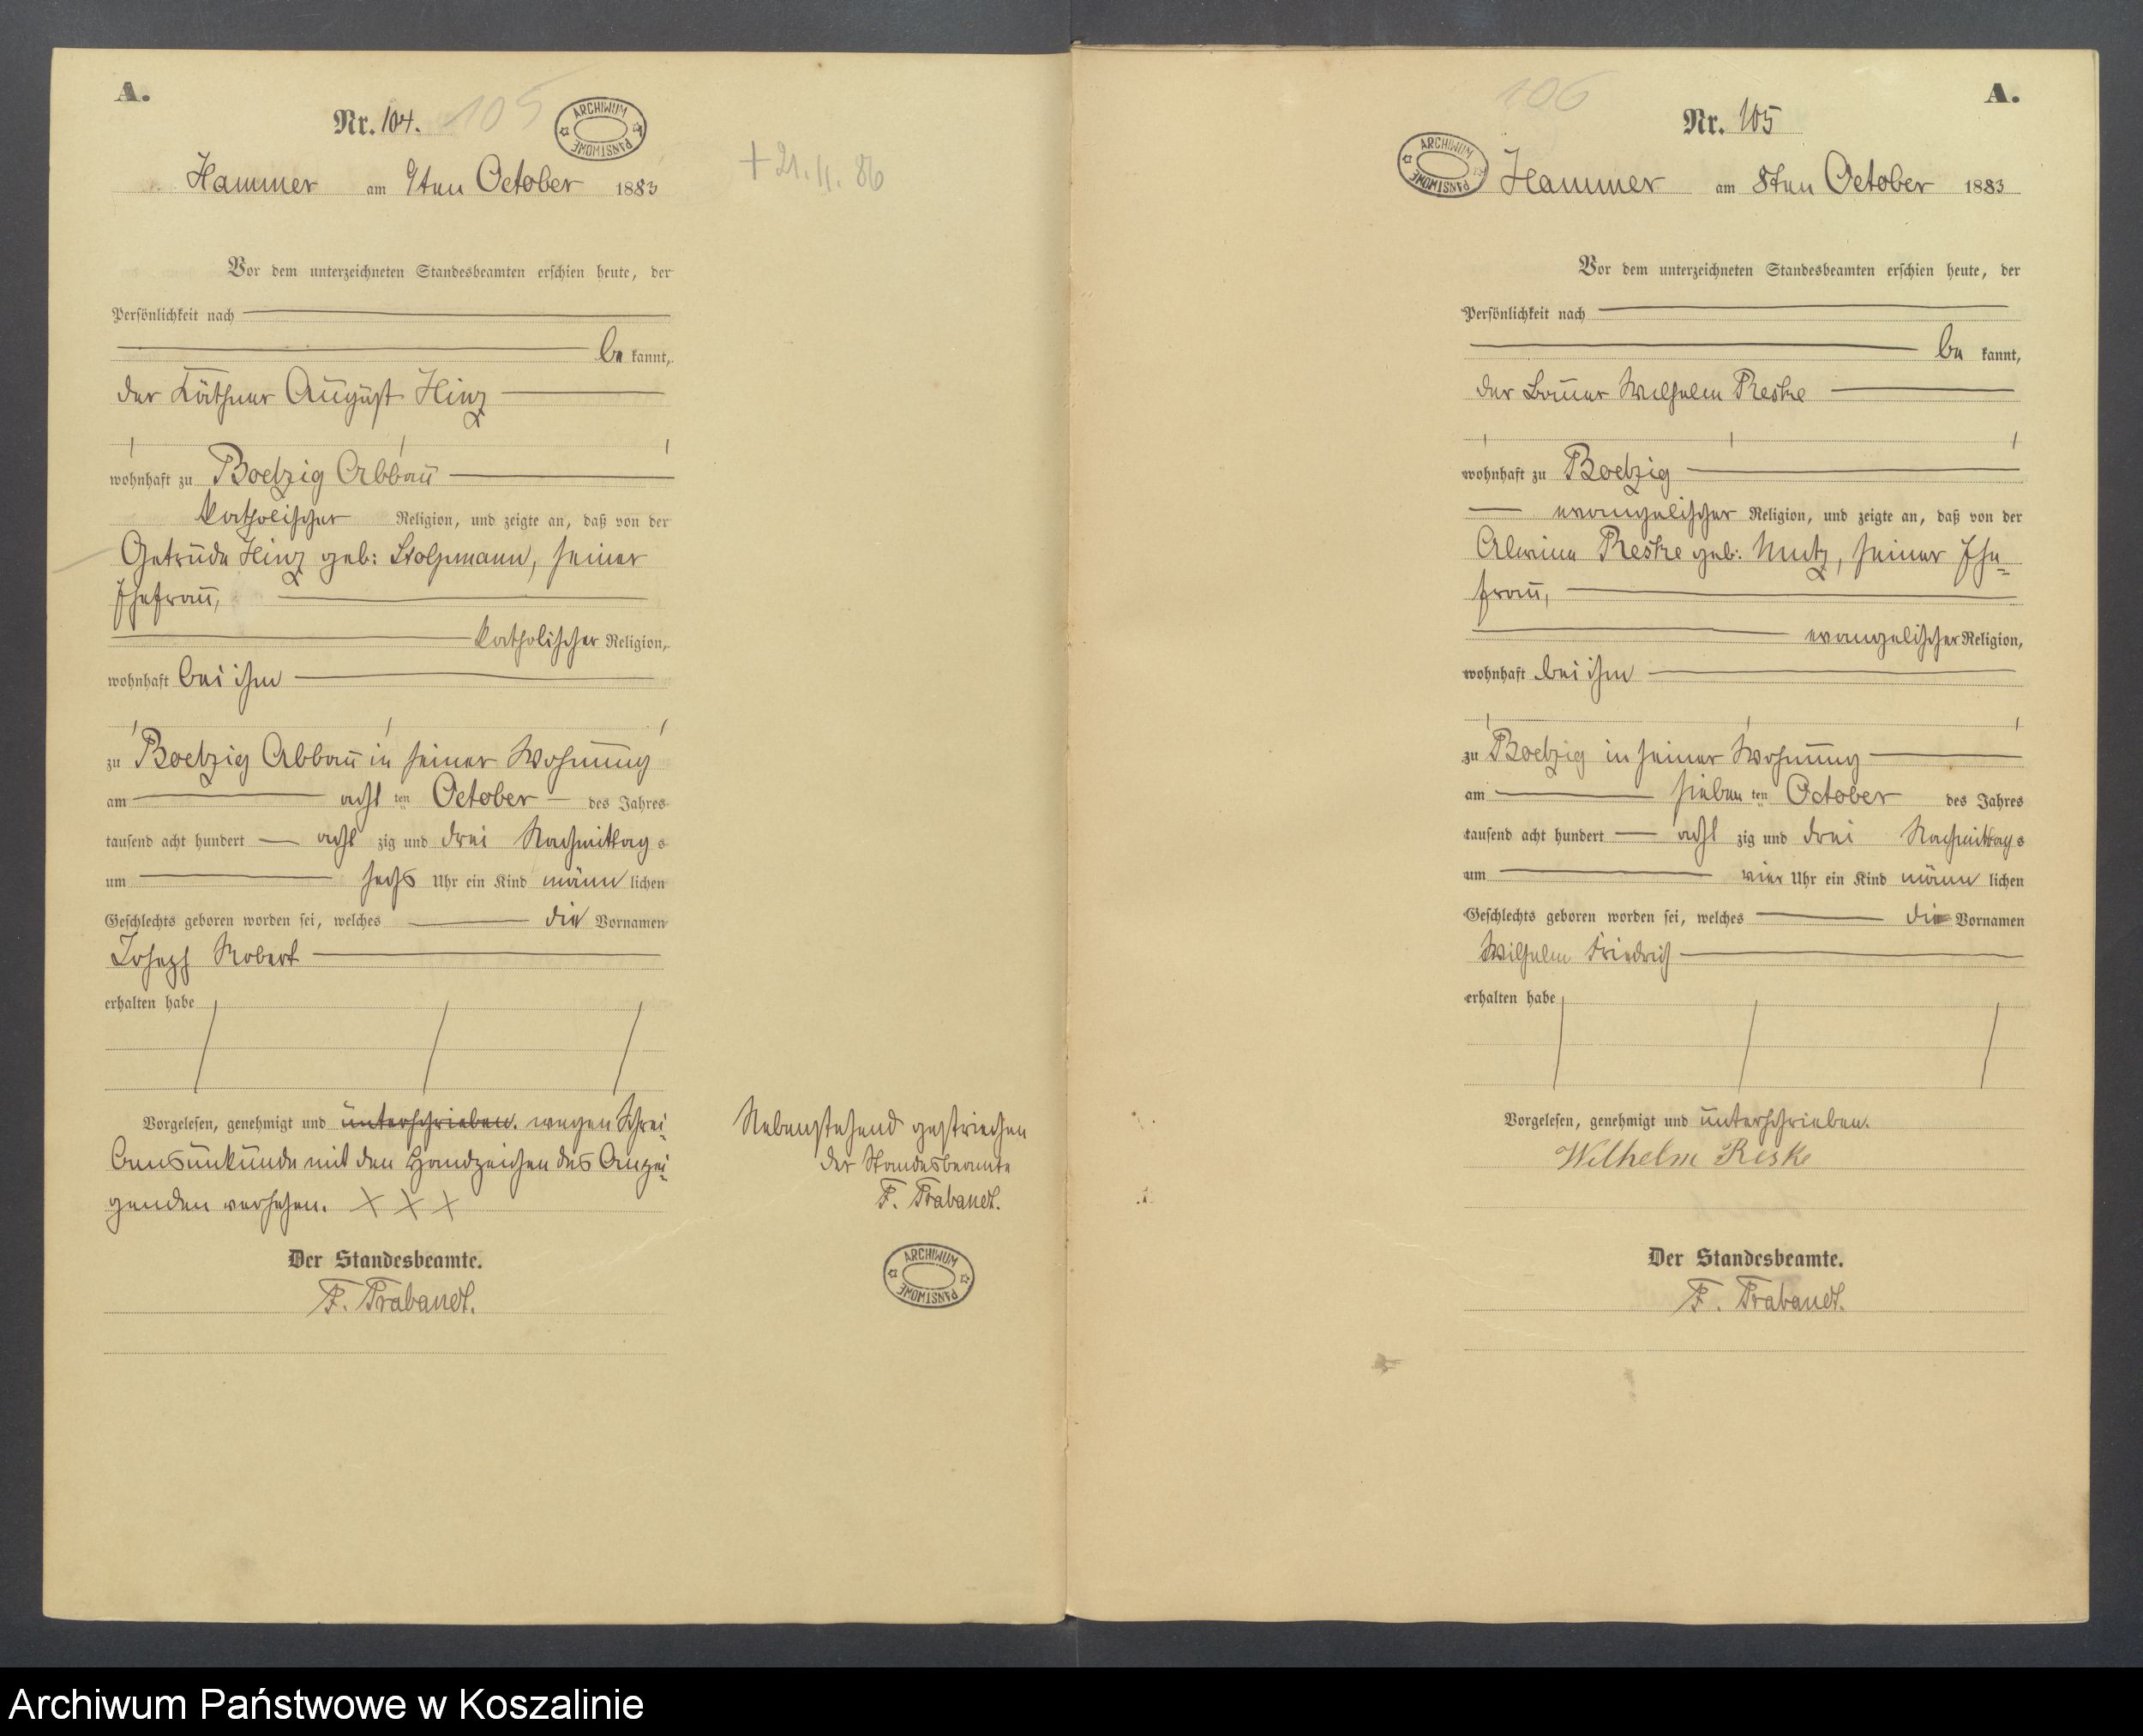 A.
Nr. 104.
105
ARCHIWUM PAŃSTWOWE
Hammer am 9ten October 1883
+ 21. 11. 86
Vor dem unterzeichneten Standesbeamten erschien heute, der
Persönlichkeit nach
be kannt,
der Käthner August Hinz
wohnhaft zu Boetzig Abbau
katholischer Religion, und zeigte an, daß von der
Getrude Hinz geb: Stolpmann, seiner
Ehefrau,
katholischer Religion,
wohnhaft bei ihm
zu Boetzig Abbau in seiner Wohnung
am acht ten October des Jahres
tausend acht hundert acht zig und drei Nachmittags
um sechs Uhr ein Kind männ lichen
Geschlechts geboren worden sei, welches die Vornamen
Joseph Robert
erhalten habe
Vorgelesen, genehmigt und unterschrieben. wegen Schrei-
bensunkunde mit den Handzeichen des Anzei-
genden versehen. X X X
Nebenstehend gestrichen
der Standesbeamte
F. Trabandt.
ARCHIWUM PAŃSTWOWE
Der Standesbeamte.
F. Trabandt.
A.
106
Nr. 105
ARCHIWUM PAŃSTWOWE
Hammer am 8ten October 1883
Vor dem unterzeichneten Standesbeamten erschien heute, der
Persönlichkeit nach
be kannt,
der Bauer Wilhelm Reske
wohnhaft zu Boetzig
evangelischer Religion, und zeigte an, daß von der
Alwine Reske geb: Mutz, seiner Ehe=
frau,
evangelischer Religion,
wohnhaft bei ihm
zu Boetzig in seiner Wohnung
am sieben ten October des Jahres
tausend acht hundert acht zig und drei Nachmittags
um vier Uhr ein Kind männ lichen
Geschlechts geboren worden sei, welches die Vornamen
Wilhelm Friedrich
erhalten habe
Vorgelesen, genehmigt und unterschrieben.
Wilhelm Reske
Der Standesbeamte.
F. Trabandt.
Archiwum Państwowe w Koszalinie